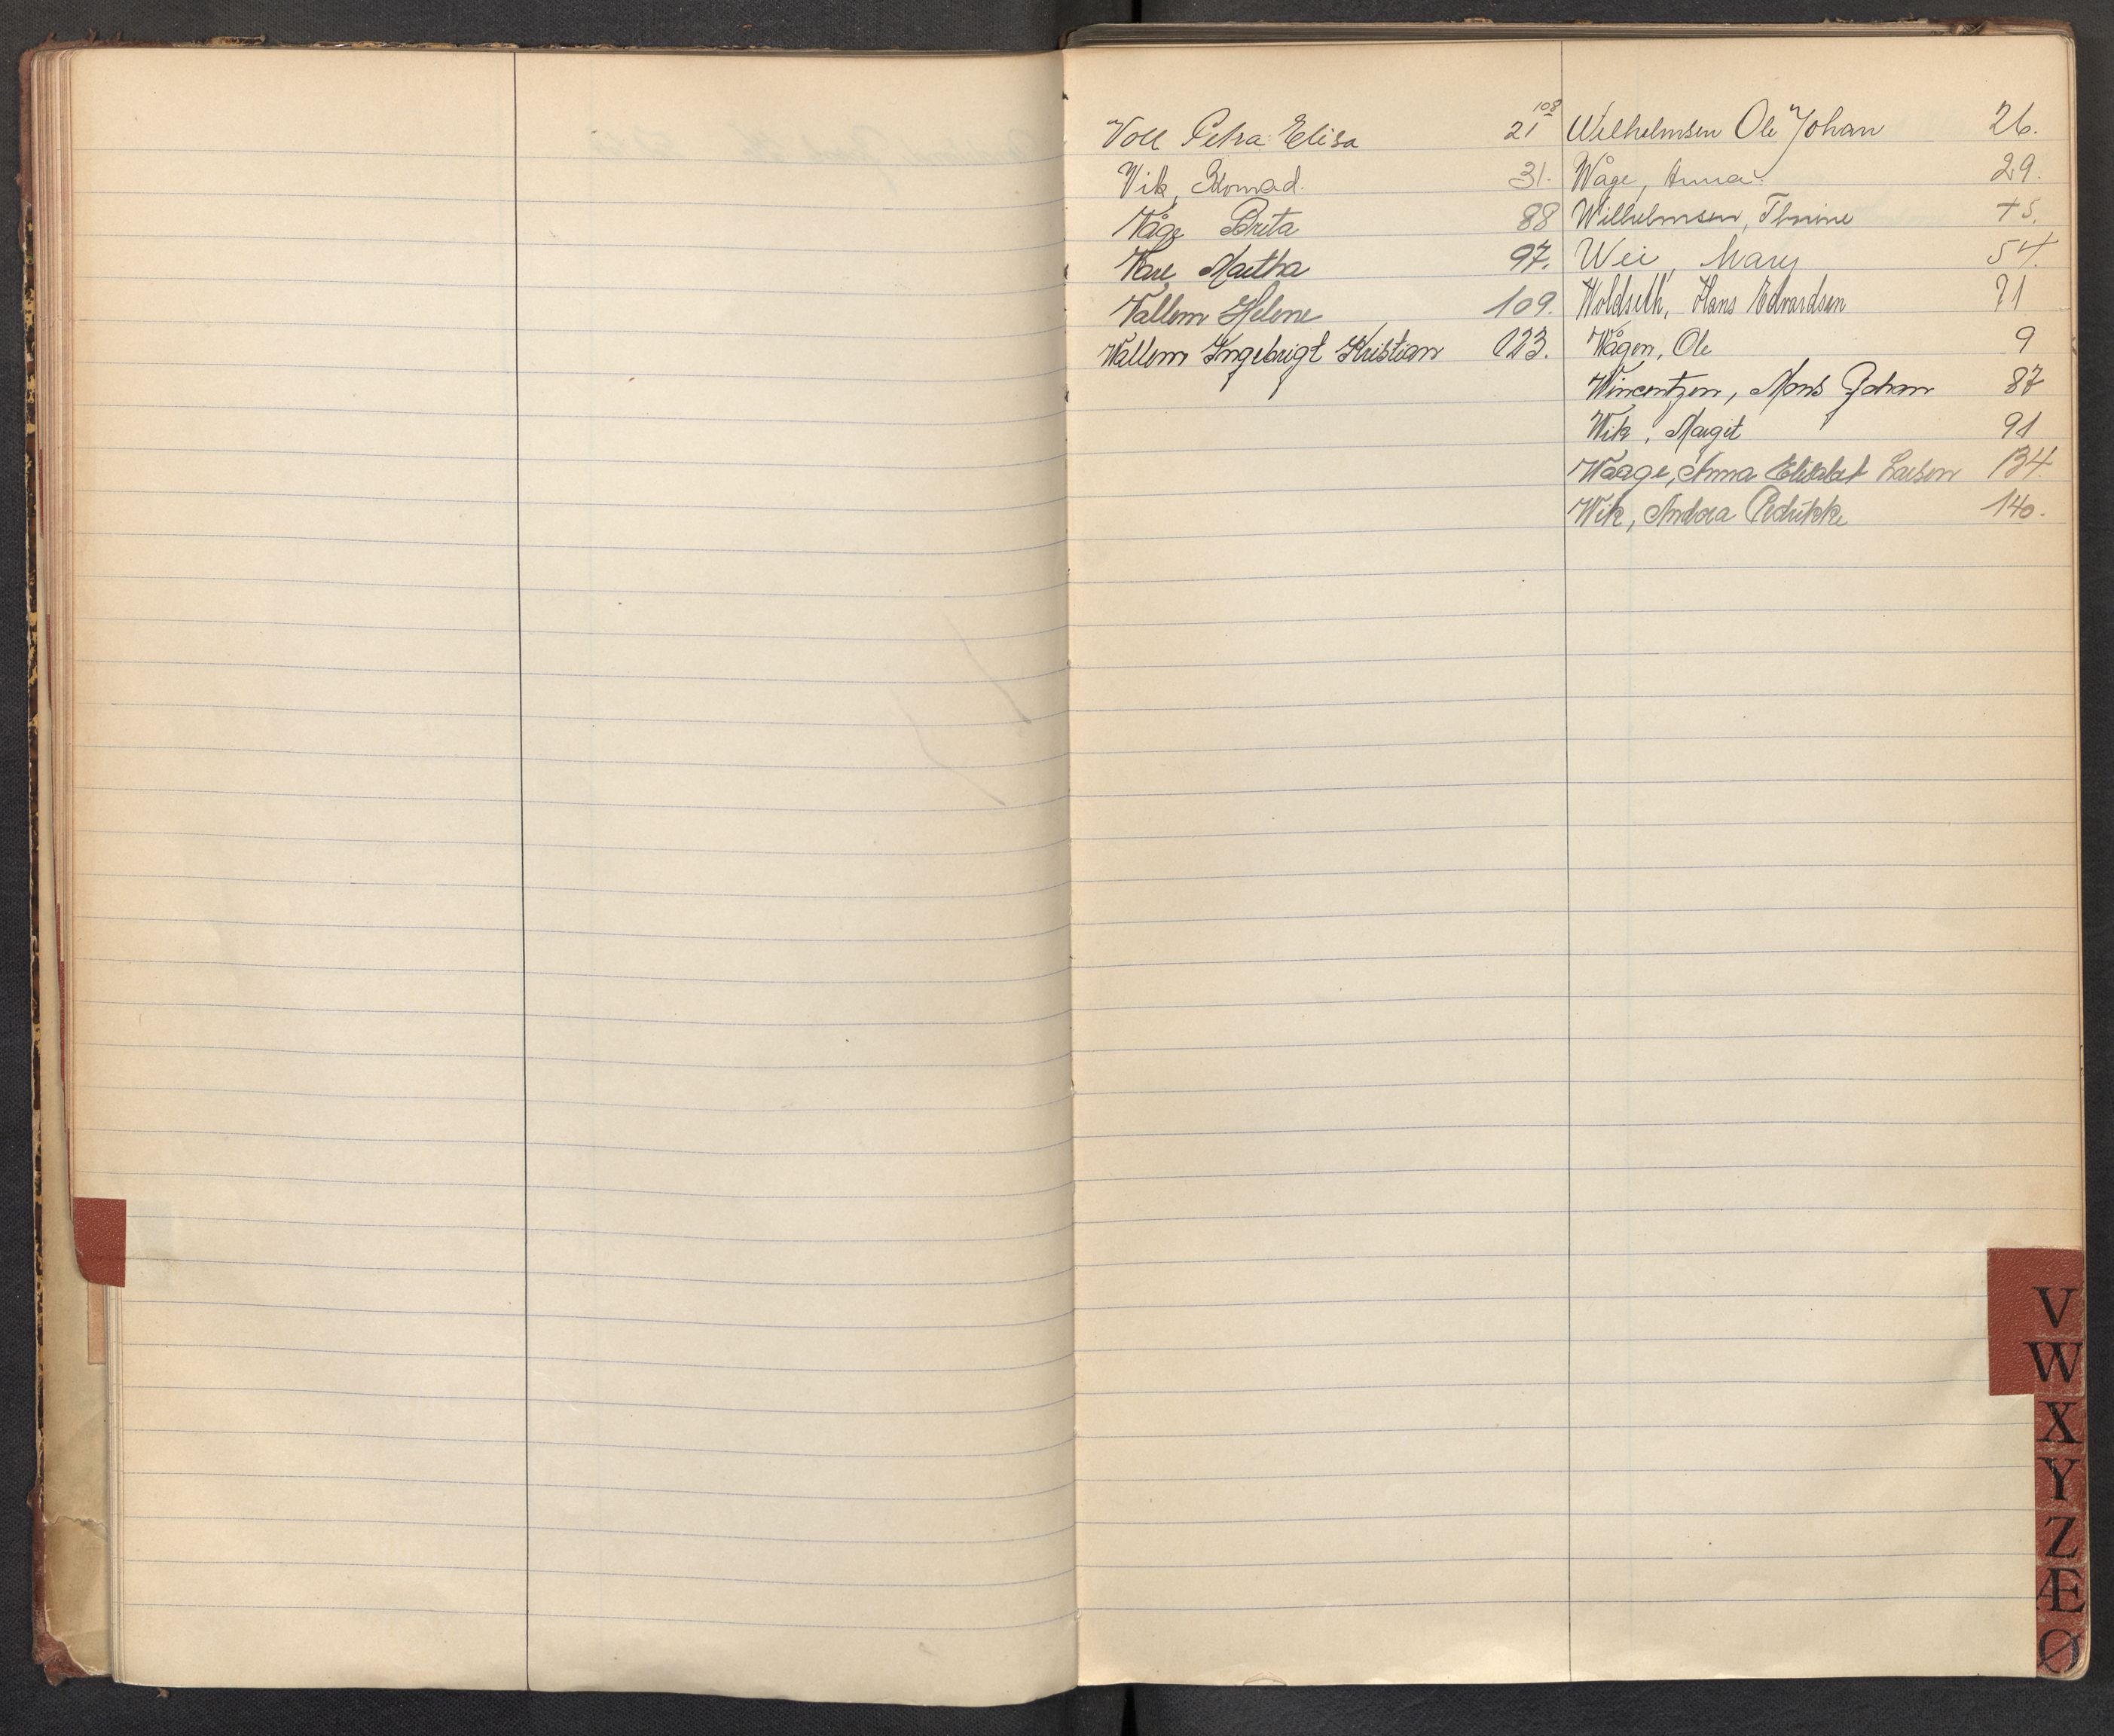 Voll Petra Elisa 21 108
Vik, Konrad. 31.
Våge Brita 88
Vare, Martha 97.
Vallem Helene 109.
Vallem Ingebrigt Kristian 123.
Wilhelmsen Ole Johan 26.
Wåge, Anna. 29.
Wilhelmsen, Thrine 45.
Wei, Mary 54.
Woldseth, Hans Edvardsen 71
Wågen, Ole 9
Wincentzen, Mons Johan 87
Wik, Margit 91
Waage, Anna Elisabet Larsen 134.
Wik, Andrea Pedrikke 140.
V
W
X
Y
Z
Æ
Ø